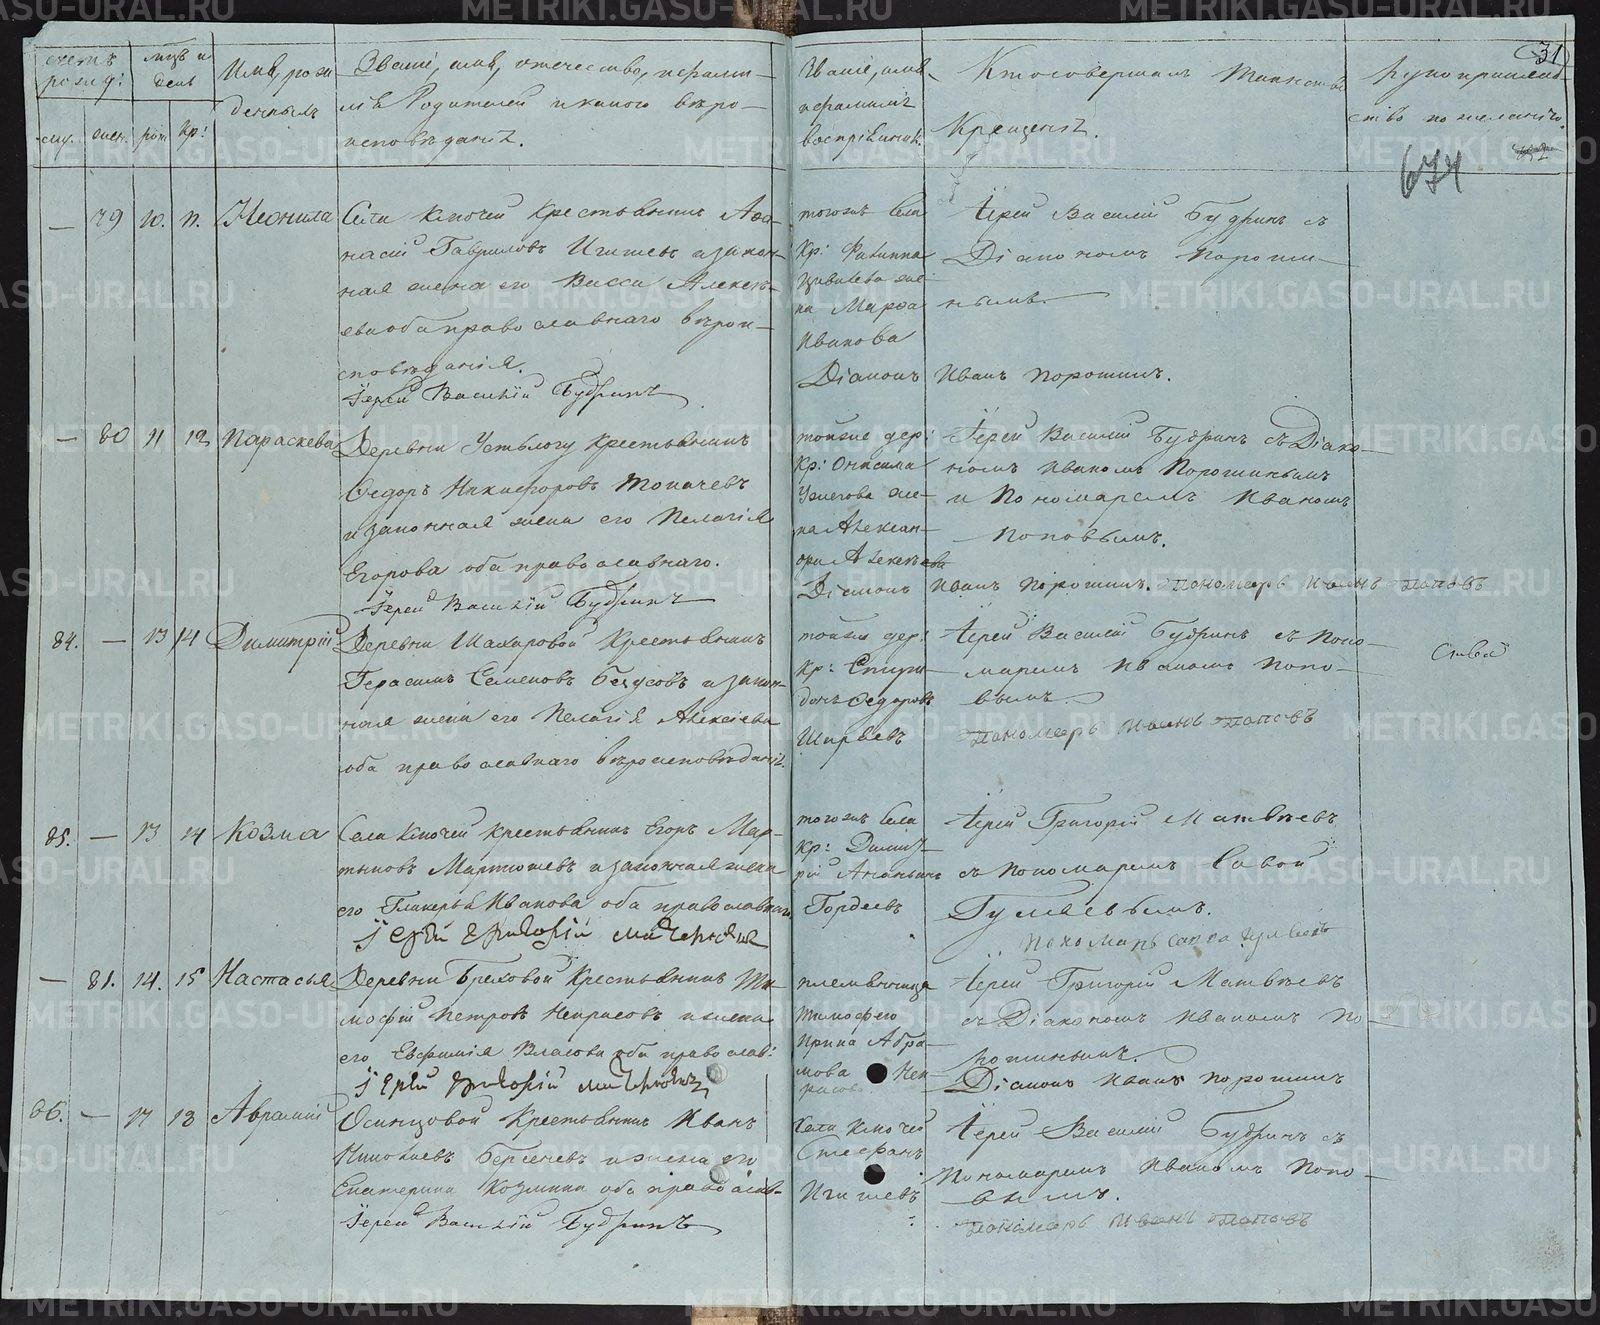 31
счетъ рожд: мцъ и день Имя, рож- Званіе, имя, отечество, и фамилі- Званіе, имя, Кто совершалъ Таинство Рукоприклад-
денныхъ Родителей и какого вѣро- и фамилія Крещенія. ство по желанію.
му. жен. рож. кр: исповѣданія. воспріемник.
674
— 79 10. 11. Неонила Села Ключей крестьянинъ Аѳа-
насій Гавриловъ Игишев и закон-
ная жена его Васса Алексѣ-
ева оба православнаго вѣрои-
сповѣданія.
Іерей Василій Будринъ
тогожъ села
Кр: Филиппа
же-
на Марѳа
Иванова
Іерей Василій Будринъ съ
Діакономъ Пороши-
нымъ.
Діаконъ Иванъ Порошинъ.
— 80 11 12 Параскева Деревни крестьянинъ
Ѳедоръ Никифоровъ Топычевъ
и законная жена его Пелагія
Егорова оба православнаго.
Іерей Василій Будринъ
тойже дер:
Кр: Онисима
же-
на Алексан-
дра Алексѣева
Іерей Василій Будринъ съ Діако-
номъ Иваномъ Порошинымъ
и Пономаремъ Иваномъ
Поповымъ.
Діаконъ Иванъ Порошинъ. Пономарь Иванъ Поповъ
84. — 13 14 Димитрій Деревни Шахаровой Крестьянинъ
Герасимъ Семеновъ и закон-
ная жена его Пелагія Алексіева
оба православнаго вѣроисповѣданія.
тойже дер:
кр: Спири-
донъ Ѳедоровъ
Ширяевъ
Іерей Василій Будринъ съ Поно-
маремъ Иваномъ Попо-
вымъ.
Пономарь Иванъ Поповъ
85. — 13 14 Козма Села Ключей крестьянинъ Егоръ Мар-
тыновъ Мартюшевъ и законная жена
его Гликерья Иванова оба православнаго
Іерей Григорій Матвѣевъ
тогожъ села
кр: Димит-
рій Ананьинъ
Гордеевъ
Іерей Григорій Матвѣевъ
съ пономаремъ Савой
Гуляевымъ.
Пономарь Савва Гуляевъ
— 81. 14. 15 Настасья Деревни Бреховой Крестьянинъ Ти-
мофѣй Петровъ Некрасовъ и жена
его Евфимія Власова оба православ:
Іерей Григорій Матвѣевъ
племянница
Тимофея
Ирина Абра-
мова Нек-
расова
Іерей Григорій Матвѣевъ
съ Діакономъ Иваномъ По-
рошинымъ.
Діаконъ Иванъ Порошинъ
86. — 17 18 Аврамій Осинцовой Крестьянинъ Иванъ
Николаевъ Берсеневъ и жена его
Екатерина Козмина оба православ-
Іерей Василій Будринъ
Села Ключей
Стефанъ
Игишевъ
Іерей Василій Будринъ съ
Пономаремъ Иваномъ Попо-
вымъ.
Пономарь Иванъ Поповъ
METRIKI.GASO-URAL.RU